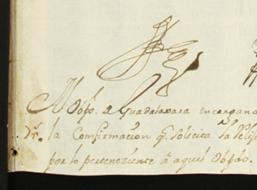 Al Obpõ. de Guadalaxara encargand
Dr. la Comfirmacion qe. Solicita
por lo perteneziente á aquel Obpdo.